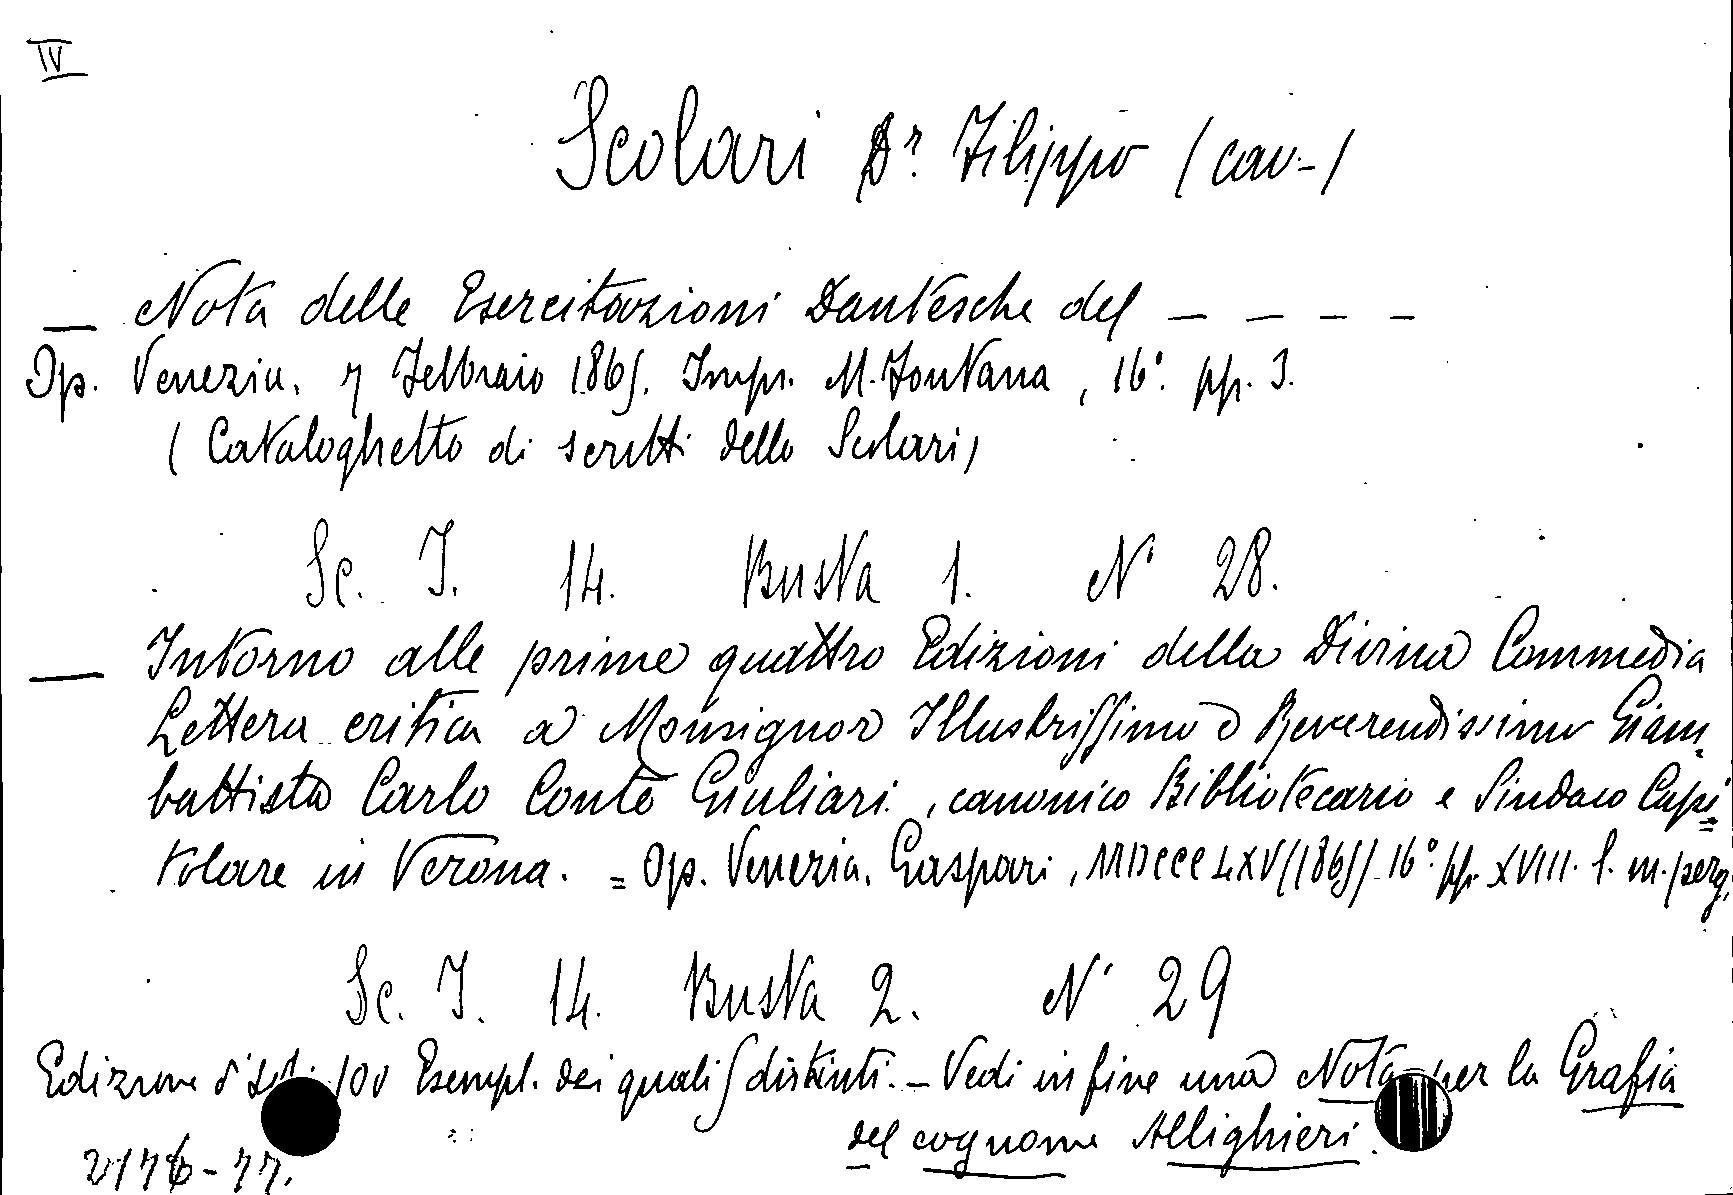 IV
Scolari Dr. Filippo (cav.-)
— Nota delle Esercitazioni Dantesche del — — — —
Op. Venezia. 7 Febbraio 1865. Impr. M. Fontana, 16°. pp. 3.
(Cataloghetto di scritti dello Scolari)
Sc. I. 14. Busta 1. N° 28.
— Intorno alle prime quattro Edizioni della Divina Commedia
Lettera critica a Monsignor Illustrissimo e Reverendissimo Giam-
battista Carlo Conte Giuliari, canonico Bibliotecario e Sindaco Capi=
tolare in Verona. = Op. Venezia. Gaspari, MDCCCLXV (1865) 16°. pp. XVIII. l. m. perg.
Sc. I. 14. Busta 2. N° 29
Edizione di 100 Esempl. dei quali 5 distinti. — Vedi in fine una Nota per la Grafia
del cognome Allighieri.
2176-77.